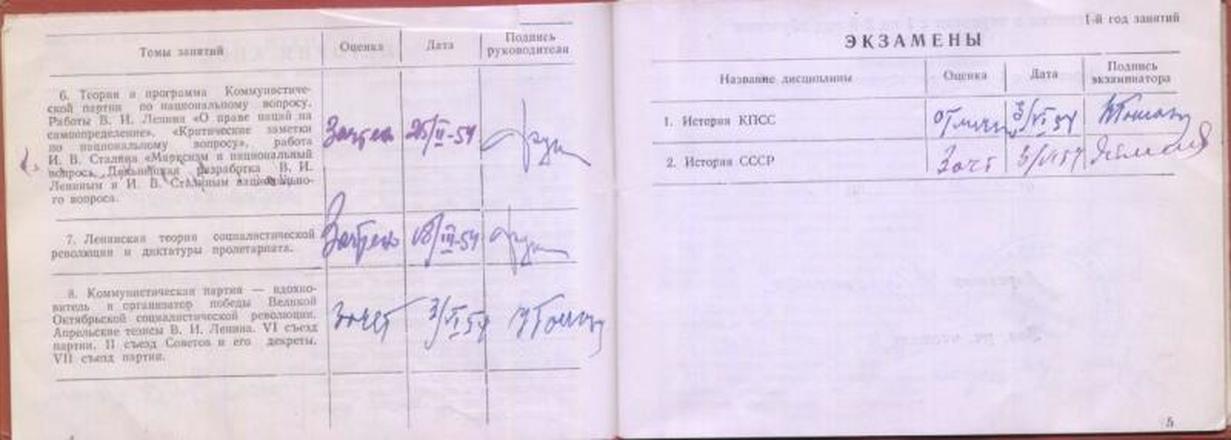 Темы занятий
Оценка
Дата
Подпись
руководителя
6. Теория и программа Коммунистиче-
ской партии по национальному вопросу.
Работы В. И. Ленина «О праве наций на
самоопределение», «Критические заметки
по национальному вопросу», работа
И. В. Сталина «Марксизм и национальный
вопрос». Дальнейшая разработка В. И.
Лениным и И. В. Сталиным национально-
го вопроса.
Зачтено
25/II-54
7. Ленинская теория социалистической
революции и диктатуры пролетариата.
Зачтено
18/III-54
8. Коммунистическая партия — вдохно-
витель и организатор победы Великой
Октябрьской социалистической революции.
Апрельские тезисы В. И. Ленина. VI съезд
партии. II съезд Советов и его декреты.
VII съезд партии.
зачет
3/VI 54
1-й год занятий
ЭКЗАМЕНЫ
Название дисциплины
Оценка
Дата
Подпись
экзаминатора
1. История КПСС
3/VI 54
2. История СССР
Зачт
5